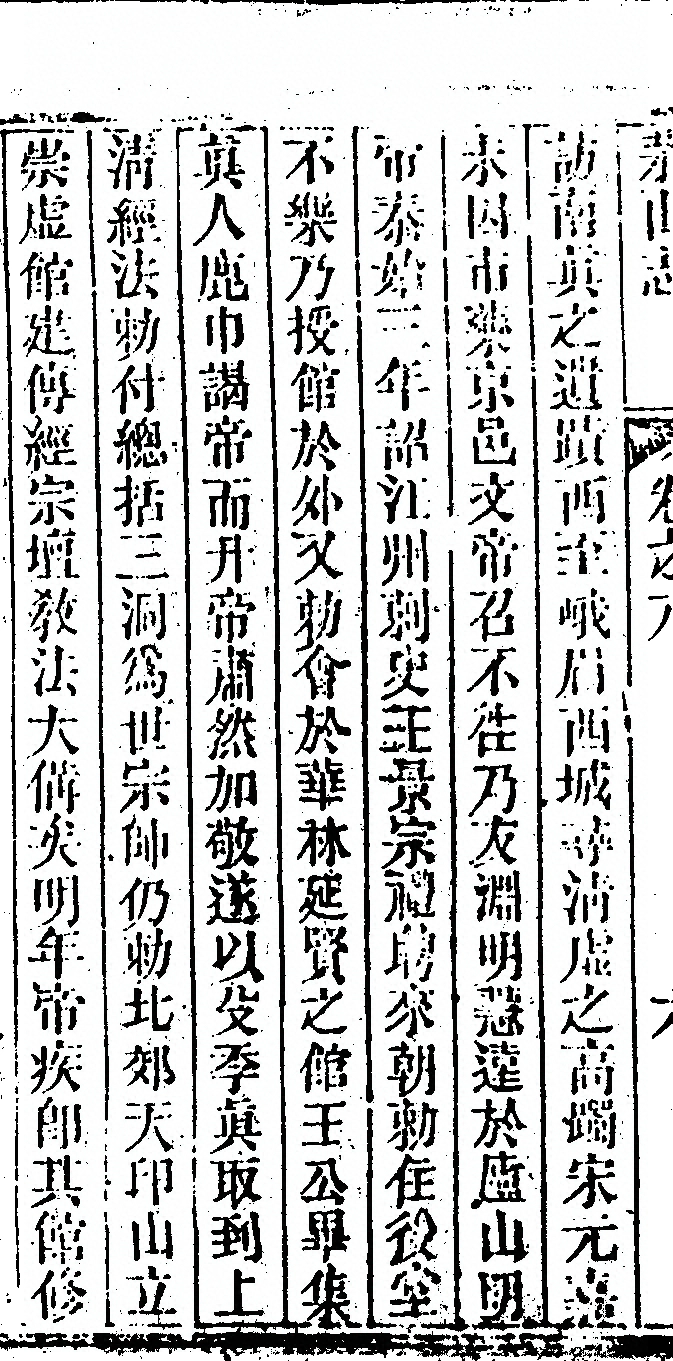 茅山志 卷之八 六
訪南真之遺蹟西至峨眉西城尋清虛之高躅宋元嘉
末因市藥京邑文帝召不往乃友淵明慧遠於廬山明
帝泰始三年詔江州刺史王景宗禮聘來朝勅住後堂
不樂乃授館於外又勅會於華林延賢之館王公畢集
真人鹿巾謁帝而升帝肅然加敬遂以殳季真取到上
清經法勅付總括三洞為世宗師仍勅北郊天印山立
崇虛館建傳經宗壇教法大備矣明年帝疾即其館修